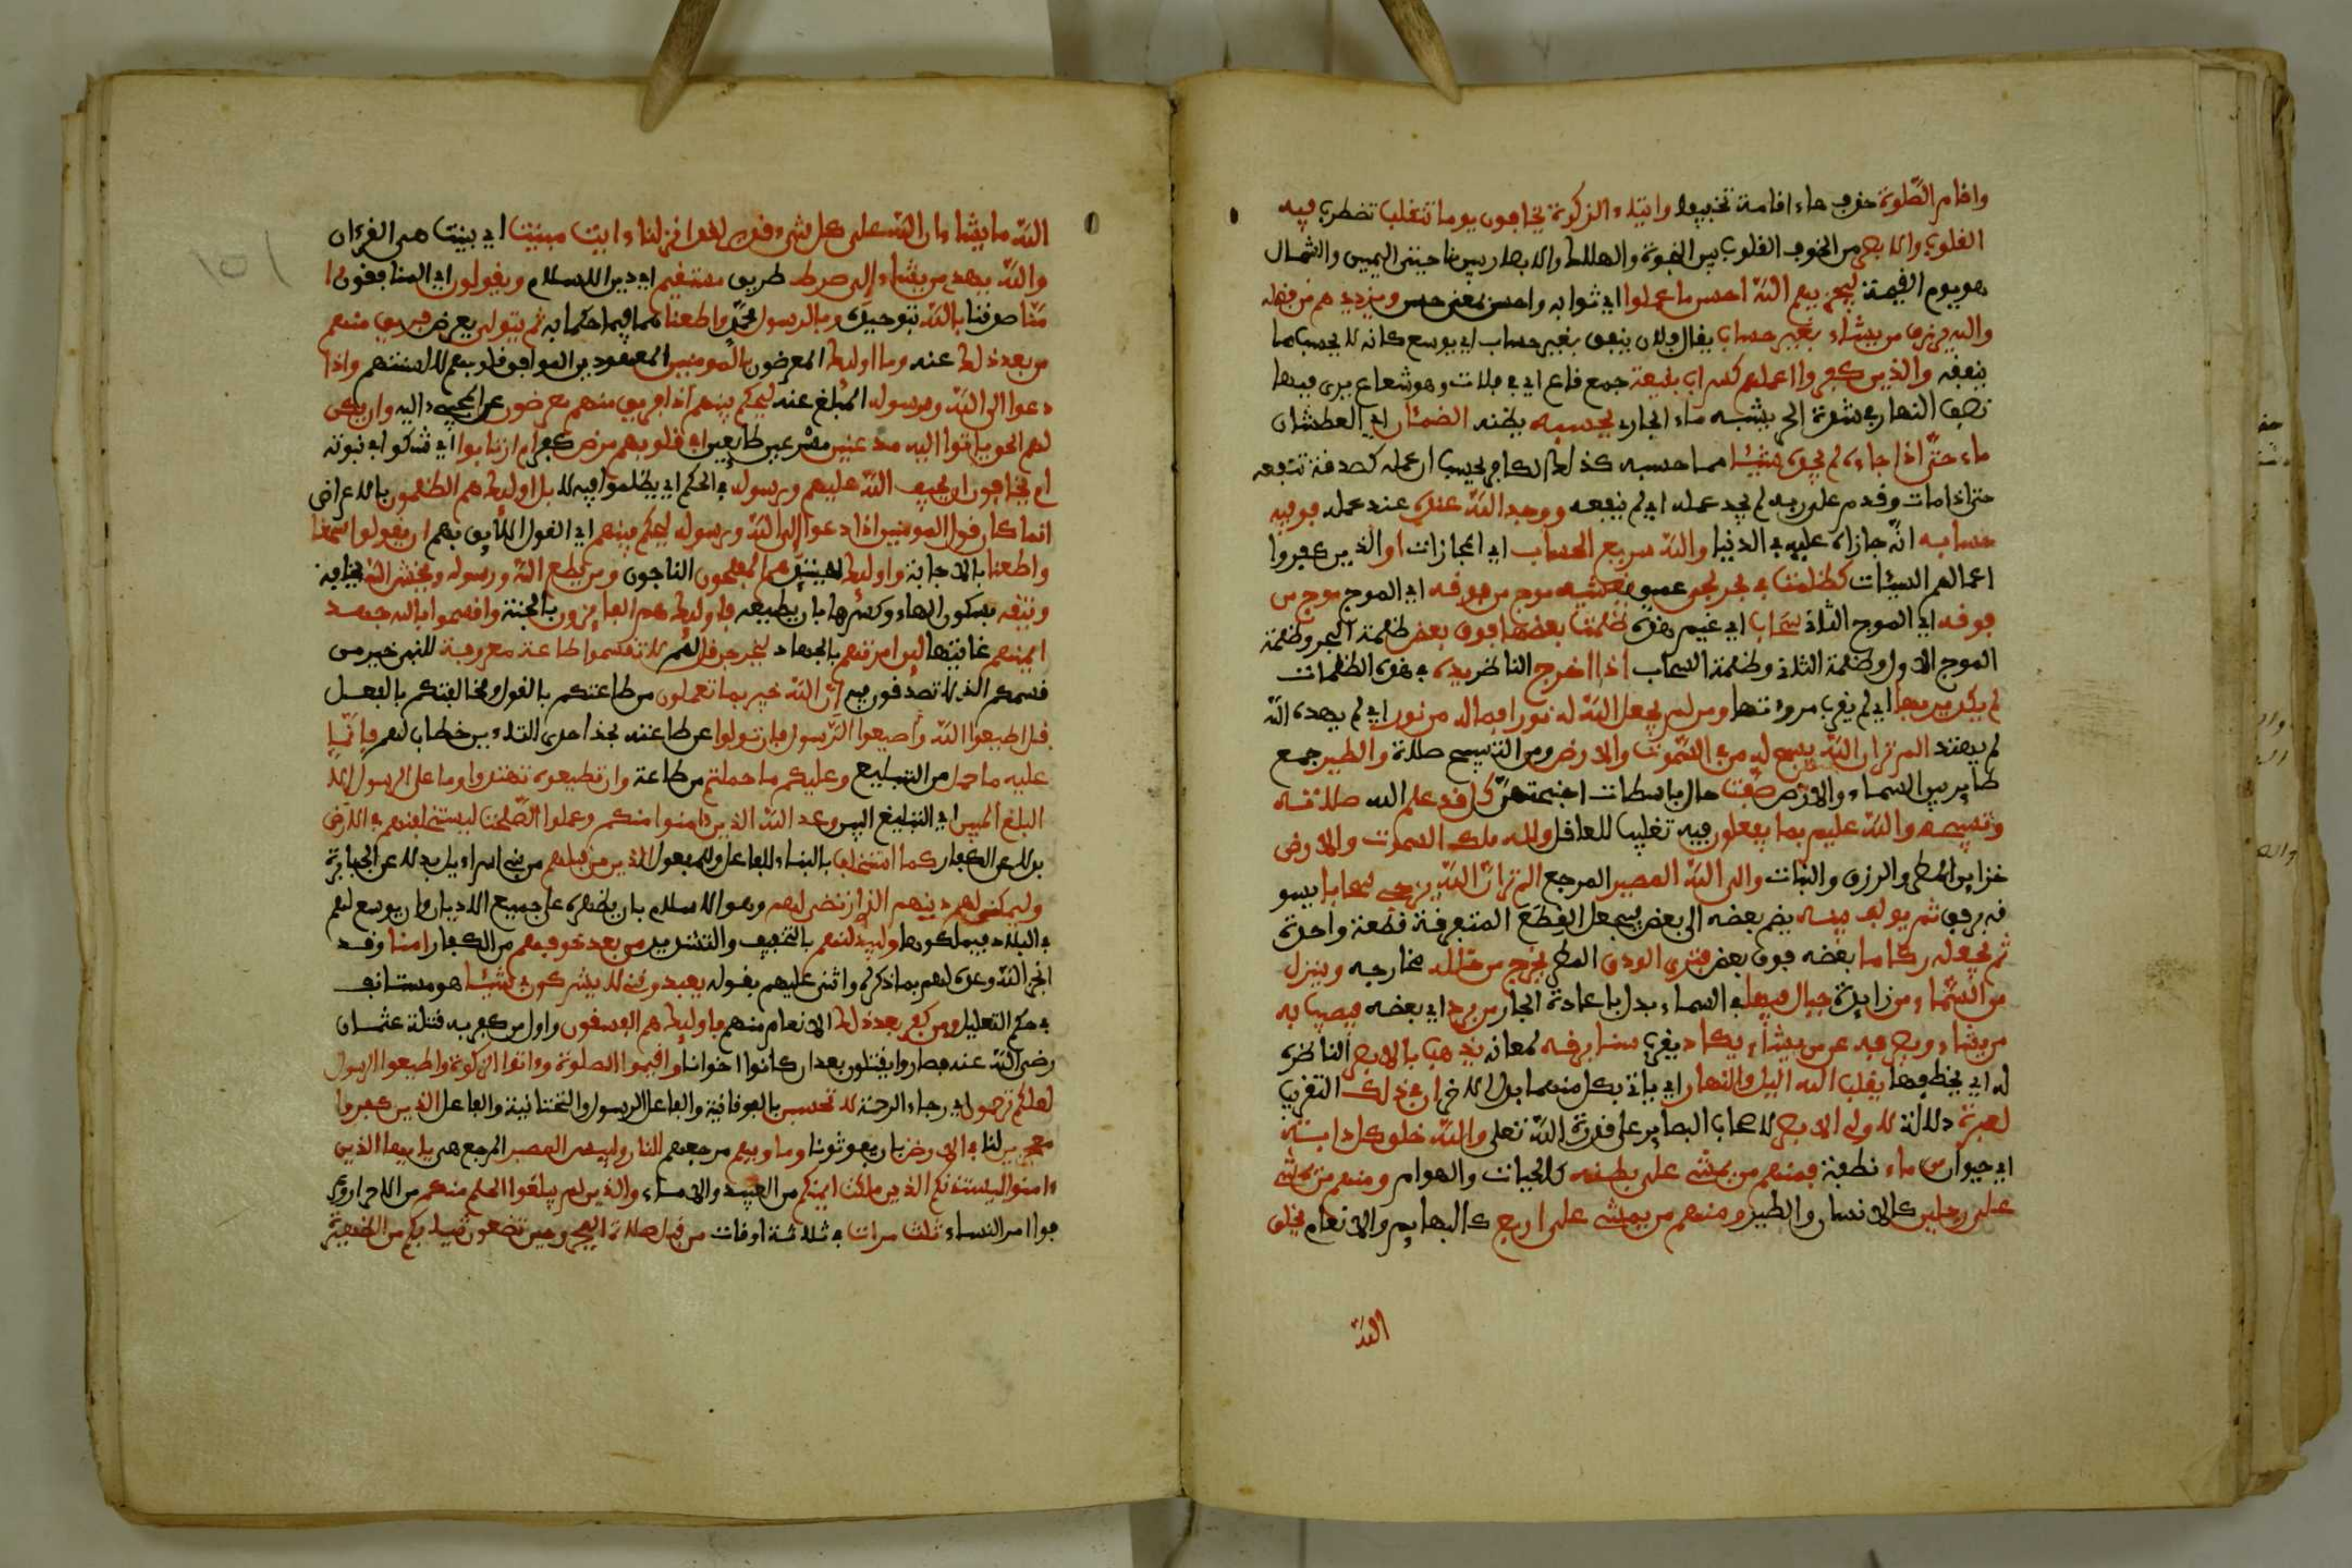 واقام الصلوة حذف هاء اقامة تخفيفا وايتاء الزكوة يخافون يوما تتقلب تضطرب فيه
القلوب والابصر من الخوف القلوب بين النجوة والهلاك والابصار بين ناحيتي اليمين والشمال
هو يوم القيمة ليجزيهم الله احسن ما عملوا اي ثوابه واحسن بمعنى حسن ويزيدهم من فضله
والله يرزق من يشاء بغير حساب يقال فلان ينفق بغير حساب اي يوسع كانه لا يحسب ما
ينفقه والذين كفروا اعملهم كسراب بقيعة جمع قاع اي في فلات وهو شعاع يرى فيها
نصف النهار في شدة الحر يشبه ماء الجاري يحسبه يظنه الضمئان اي العطشان
ماء حتى اذا جاءه لم يجده شيئا مما حسبه كذلك الكافر يحسب ان عمله كصدقة تنفعه
حتى اذا مات وقدم على ربه لم يجد عمله اي لم ينفعه ووجد الله عنده عند عمله فوفيه
حسابه انه جازاه عليه في الدنيا والله سريع الحساب اي المجازات او الذين كفروا
اعمالهم السيئات كظلمت في بحر لجي عميق يغشيه موج من فوقه اي الموج موج من
فوقه اي الموج الثاني سحاب اي غيم هذه ظلمت بعضها فوق بعض ظلمة البحر وظلمة
الموج الاول وظلمة الثاني وظلمة السحاب اذا اخرج الناظر يده في هذه الظلمات
لم يكد يريها اي لم يقرب من رؤيتها ومن لم يجعل الله له نورا فما له من نور اي لم يهده الله
لم يهتد الم تر ان الله يسبح له من في السموت والارض ومن التسبيح صلاة والطير جمع
طاير بين السماء والارض صفت حال باسطات اجنحتهن كل قد علم الله صلاته
وتسبيحه والله عليم بما يفعلون فيه تغليب للعاقل ولله ملك السموت والارض
خزاين المطر والرزق والنبات والى الله المصير المرجع الم تر ان الله يزجي سحابا يسو
قه برفق ثم يولف بينه يضم بعضه الى بعض يجعل القطع المتفرقة قطعة واحدة
ثم يجعله ركاما بعضه فوق بعض فترى الودق المطر يخرج من خلاله مخارجه وينزل
من السماء من زايدة جبال فيها في السماء بدل باعادة الجار من برد اي بعضه فيصيب به
من يشاء ويصرفه عن من يشاء يكاد يقرب سنا برقه لمعانه يذهب بالابصر الناظرة
له اي يخطفها يقلب الله اليل والنهار اي ياتي بكل منهما بدل الاخر ان في ذلك التقريب
لعبرة دلالة لاولي الابصر لاصحاب البصاير على قدرة الله تعلى والله خلق كل دابة
اي حيوان من ماء نطفة فمنهم من يمشي على بطنه كالحيات والهوام ومنهم من يمشي
على رجلين كالانسان والطير ومنهم من يمشي على اربع كالبهايم والانعام يخلق
الله
الله ما يشاء ان الله على كل شيء قدير لقد انزلنا ءايت مبينت اي بينت هي القرءان
والله يهدي من يشاء الى صرط طريق مستقيم اي دين الاسلام ويقولون اي المنافقون ءا
منا صدقنا بالله بتوحيده وبالرسول محمد واطعنا هما فيما حكما به ثم يتولى يعرض فريق منهم
من بعد ذلك عنه وما اوليك المعرضون بالمومنين المعهودين الموافق قلوبهم لالسنتهم واذا
دعوا الى الله ورسوله المبلغ عنه ليحكم بينهم اذا فريق منهم معرضون عن المجيء اليه وان يكن
لهم الحق ياتوا اليه مذعنين مسرعين طايعين افي قلوبهم مرض كفر ام ارتابوا اي شكوا في نبوته
ام يخافون ان يحيف الله عليهم ورسوله في الحكم اي يظلموا فيه لا بل اوليك هم الظلمون بالاعراض
انما كان قول المومنين اذا دعوا الى الله ورسوله ليحكم بينهم اي القول اللايق بهم ان يقولوا سمعنا
واطعنا بالاجابة واوليك حينئذ هم المفلحون الناجون ومن يطع الله ورسوله ويخش الله يخافه
ويتقه بسكون الهاء وكسرها بان يطيعه فاوليك هم الفايزون بالجنة واقسموا بالله جهد
ايمنهم غايتها لين امرتهم بالجهاد ليخرجن قل لهم لا تقسموا طاعة معروفة للنبي خير من
قسمكم الذي لا تصدقون فيه ان الله خبير بما تعملون من طاعتكم بالقول ومخالفتكم بالفعل
قل اطيعوا الله واطيعوا الرسول فان تولوا عن طاعته بحذف احدى التاءين خطاب لهم فانما
عليه ما حمل من التبليغ وعليكم ما حملتم من طاعة وان تطيعوه تهتدوا وما على الرسول الا
البلغ المبين اي التبليغ البين وعد الله الذين ءامنوا منكم وعملوا الصلحت ليستخلفنهم في الارض
بدلا عن الكفار كما استخلف بالبناء للفاعل والمفعول الذين من قبلهم من بني اسراءيل بدلا عن الجبابرة
وليمكنن لهم دينهم الذي ارتضى لهم وهو الاسلام بان يظهره على جميع الاديان وان يوسع لهم
في البلاد فيملكوها وليبدلنهم بالتخفيف والتشديد من بعد خوفهم من الكفار امنا وقد
انجز الله وعده لهم بما ذكر واثنى عليهم بقوله يعبدونني لا يشركون بي شيئا هو مستانف
في حكم التعليل ومن كفر بعد ذلك الانعام منهم فاوليك هم الفسقون واول من كفر به قتلة عثمان
رضي الله عنه فصاروا يقتتلون بعد ان كانوا اخوانا واقيموا الصلوة وءاتوا الزكوة واطيعوا الرسول
لعلكم ترحمون اي رجاء الرحمة لا تحسبن بالفوقانية والفاعل الرسول والتحتانية والفاعل الذين كفروا
معجزين لنا في الارض بان يفوتونا وماويهم مرجعهم النار ولبيس المصير المرجع هي يا ايها الذين
ءامنوا ليستئذنكم الذين ملكت ايمنكم من العبيد والاماء والذين لم يبلغوا الحلم منكم من الاحرار وعر
فوا امر النساء ثلث مرات في ثلاثة اوقات من قبل صلاة الفجر وحين تضعون ثيابكم من الظهيرة